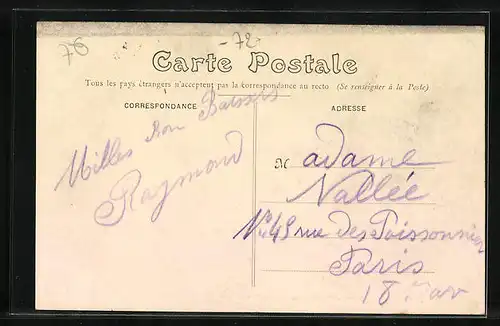 76
-72-
Carte Postale
Tous les pays étrangers n'acceptent pas la correspondance au recto (Se renseigner à la Poste)
CORRESPONDANCE
Milles Bon Baissers
Raymond
ADRESSE
Madame
Vallée
N° 49 rue des Poissonnier
Paris
18